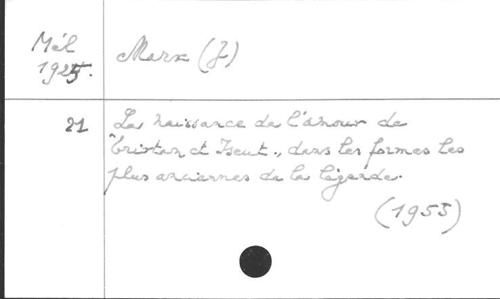 Mél
1925.
Marx (J)
21
La naissance de l'amour de
Tristan et Iseut., dans les formes les
plus anciennes de la légende.
(1955)